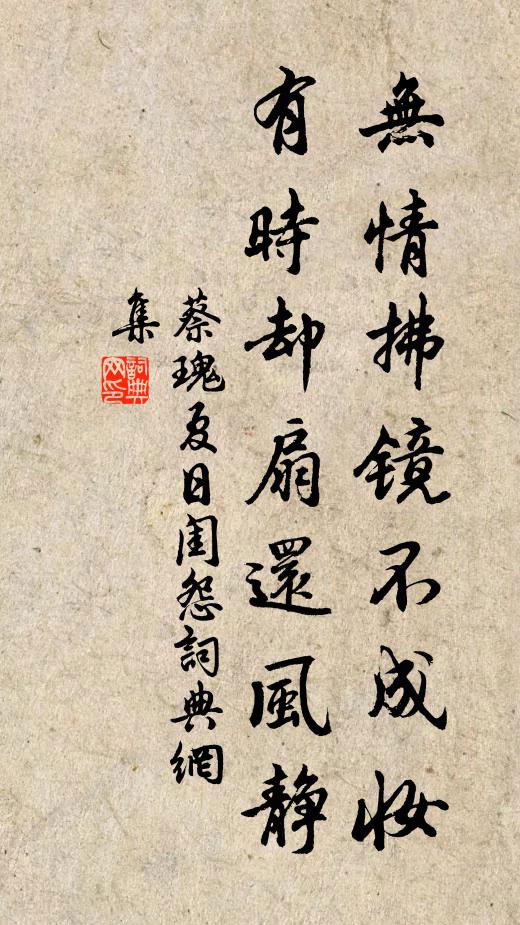 無情拂鏡不成妆
有時却扇還風静
蔡瑰夏日閨怨詞典網
集
詞典
网印